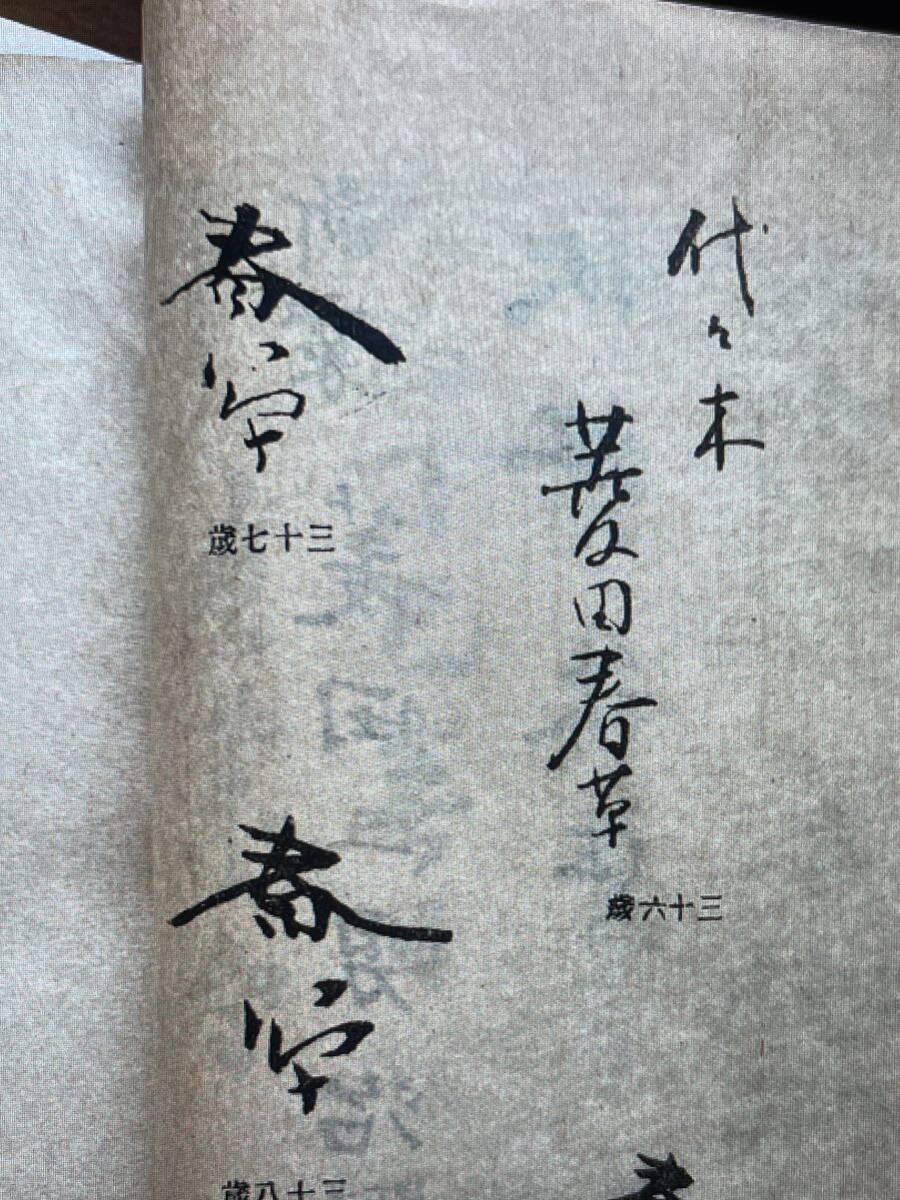 代々木
菱田春草
歳六十三
春草
歳七十三
春草
歳八十三